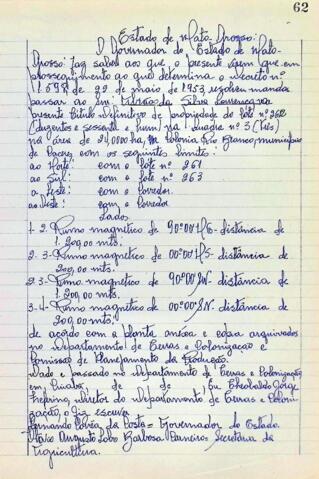 62
Estado de Mato-Grosso:
O Governador do Estado de Mato-
Grosso: Faz saber aos que o presente virem que em
prosseguimento ao que determina o decreto nº
de 29 de maio de 1953, resolveu manda
passar ao Snr: da Silva
presente titulo definitivo de propriedade do lote nº 262
(duzentos e sessenta e hum) na quadra nº 3 (três)
na área de 24,0000 ha, na Colonia Rio Branco, municipio
de com os seguintes limites:
ao Norte: com o lote nº 261
ao Sul: com o lote nº 263
a Leste: com o Corredor.
ao Oeste: com o Corredor
Lados
1-2. Rumo magnetico de 90º00' distância de
1.200,00 mts.
2.3-Rumo magnetico de 00º00' distância de
200,00 mts.
2.3-Rumo magnetico de 90º00' distância de
1.200,00 mts.
3-4-Rumo magnetico de 00º00' distância de
200,00 mts.
de acordo com a planta anexa e copia arquivados
no Departamento de Terras e Colonização e
Comissão de Planejamento da Produção.
Dado e passado no Departamento de Terras e Colonização,
em Cuiabá, de de Eu Jorge
diretor do Departamento de Terras e Coloni-
zação, o fiz escrever
Fernando Corrêa da Costa = Governador do Estado
Mario Augusto Lobo Barbosa Carneiro = Secretario da
Agricultura.